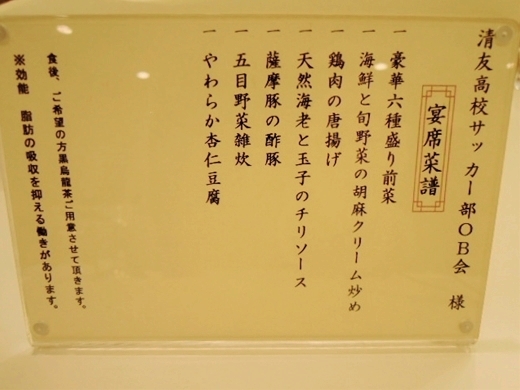 清友高校サッカー部OB会 様
宴席菜譜
一 豪華六種盛り前菜
一 海鮮と旬野菜の胡麻クリーム炒め
一 鶏肉の唐揚げ
一 天然海老と玉子のチリソース
一 薩摩豚の酢豚
一 五目野菜雑炊
一 やわらか杏仁豆腐
食後、ご希望の方黒烏龍茶ご用意させて頂きます。
※効能 脂肪の吸収を抑える働きがあります。